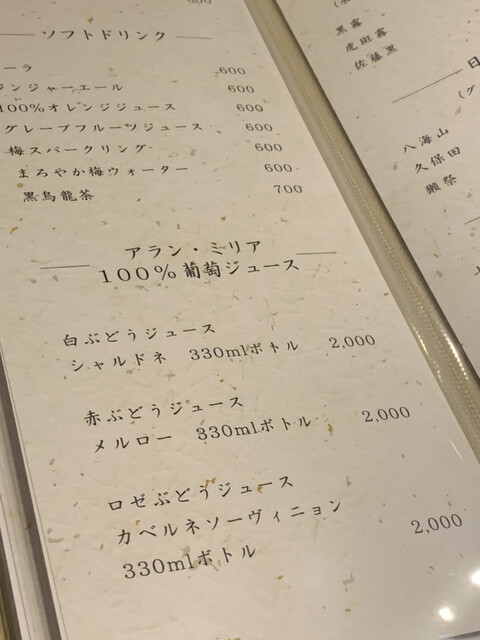 ソフトドリンク
ーラ 600
ジンジャーエール 600
100%オレンジジュース 600
グレープフルーツジュース 600
梅スパークリング 600
まろやか梅ウォーター 600
黒烏龍茶 700
アラン・ミリア
100%葡萄ジュース
白ぶどうジュース
シャルドネ 330mlボトル 2,000
赤ぶどうジュース
メルロー 330mlボトル 2,000
ロゼぶどうジュース
カベルネソーヴィニョン
330mlボトル 2,000
黒霧
虎斑霧
佐藤黒
日
(グ
八海山
久保田
獺祭